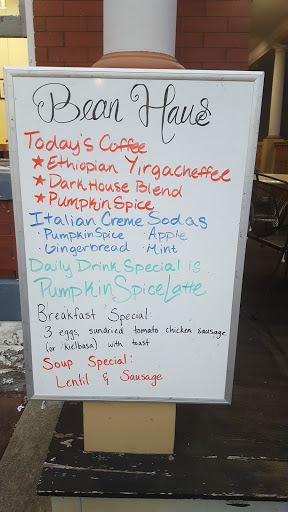 Bean Haus
Today's Coffee
★ Ethiopian Yirgacheffee
★ Dark House Blend
★ Pumpkin Spice
Italian Creme Sodas
· Pumpkin Spice · Apple
· Gingerbread · Mint
Daily Drink Special is
Pumpkin Spice Latte
Breakfast Special:
3 eggs, sundried tomato chicken sausage
(or kielbasa) with toast
Soup Special:
Lentil & Sausage